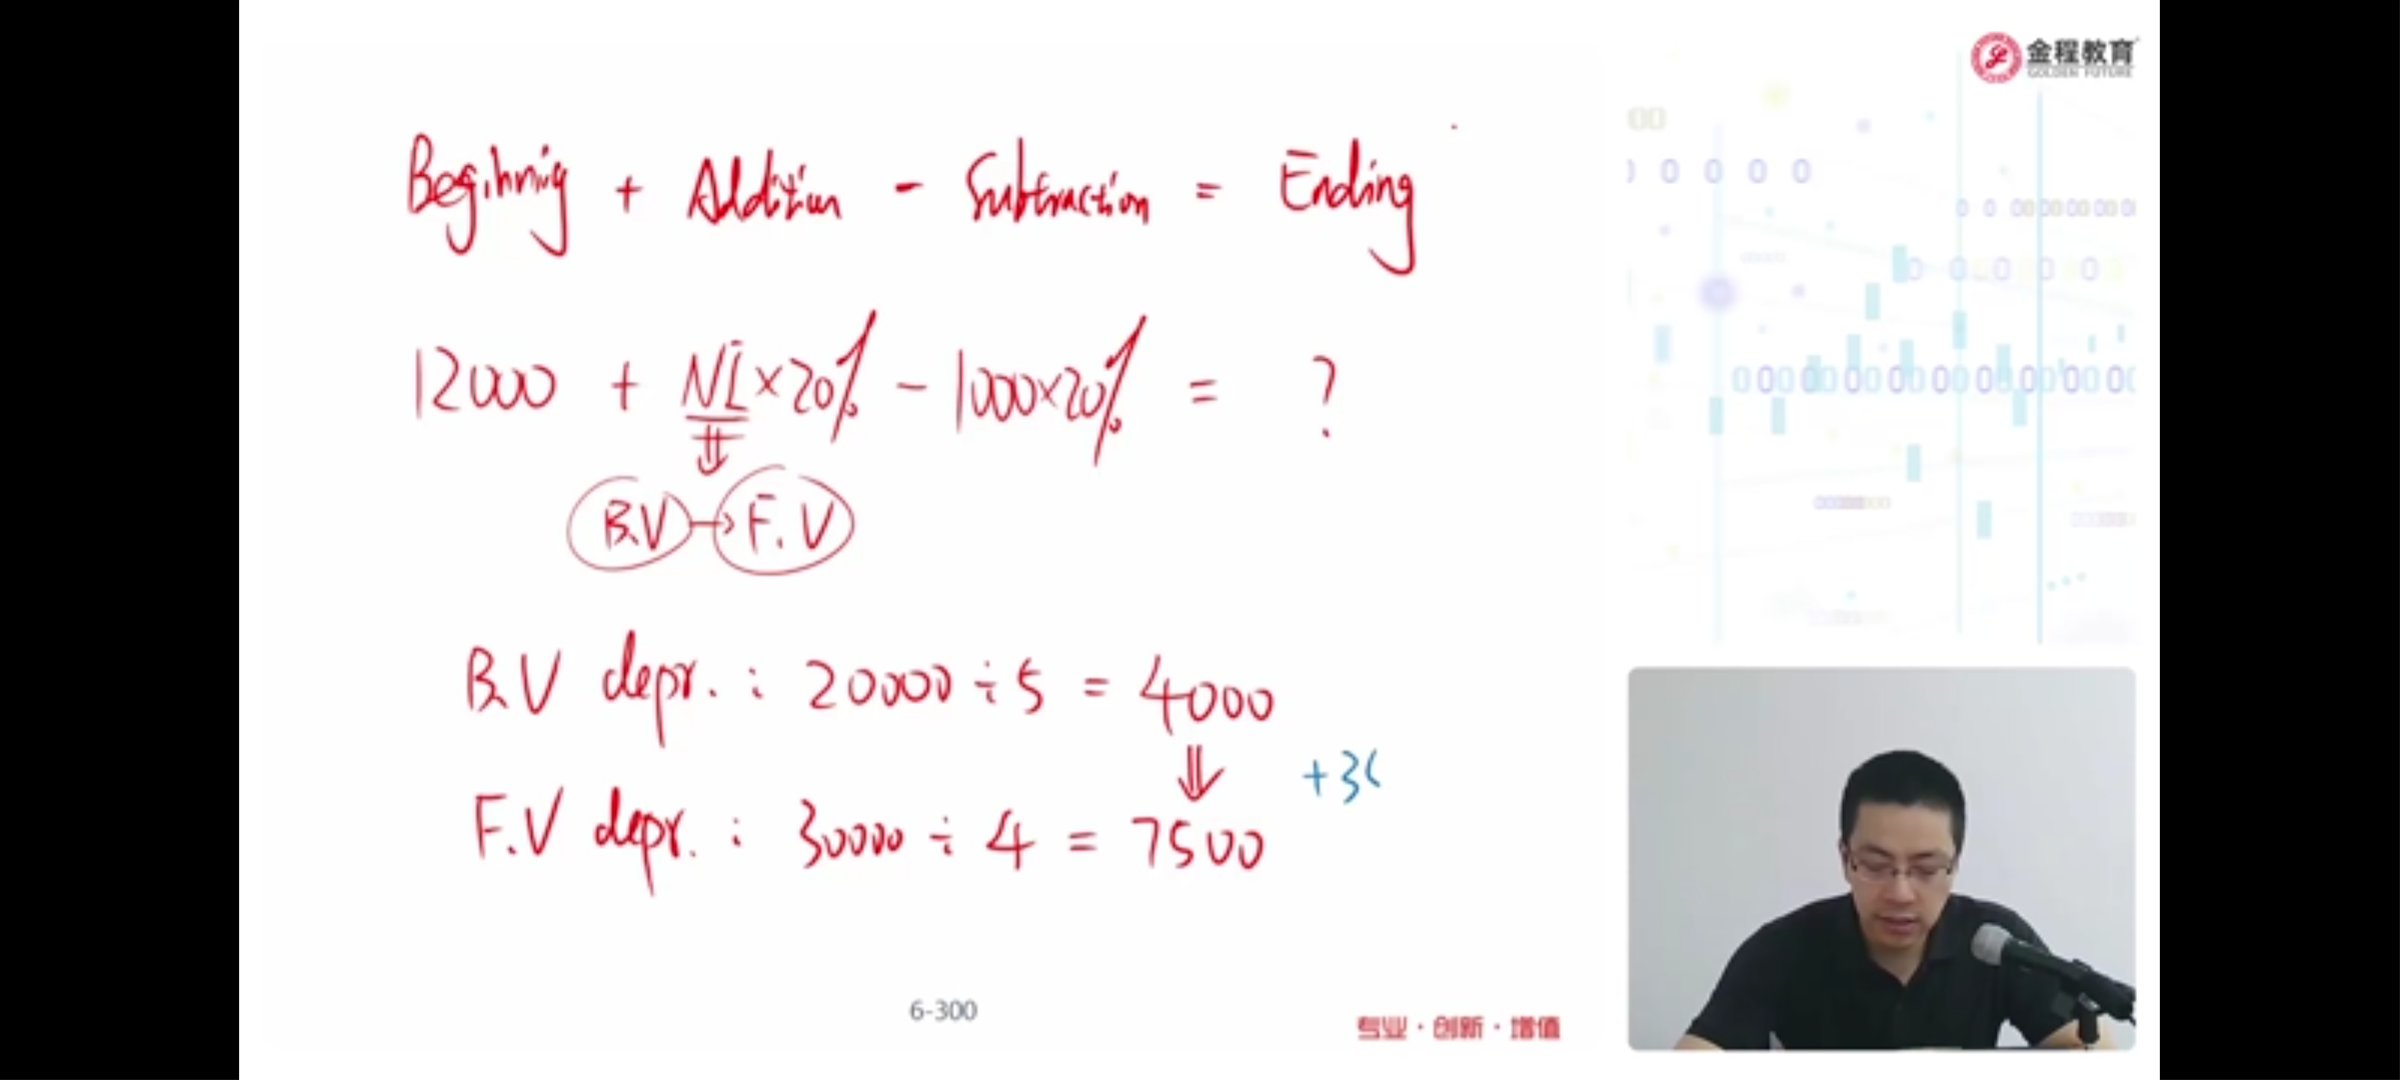 金程教育
GOLDEN FUTURE
Beginning + Addition - Subtraction = Ending
12000 + NI×20% - 1000×20% = ?
B.V → F.V
B.V depr. : 20000 ÷ 5 = 4000
+3
F.V depr. : 30000 ÷ 4 = 7500
6-300
专业·创新·增值